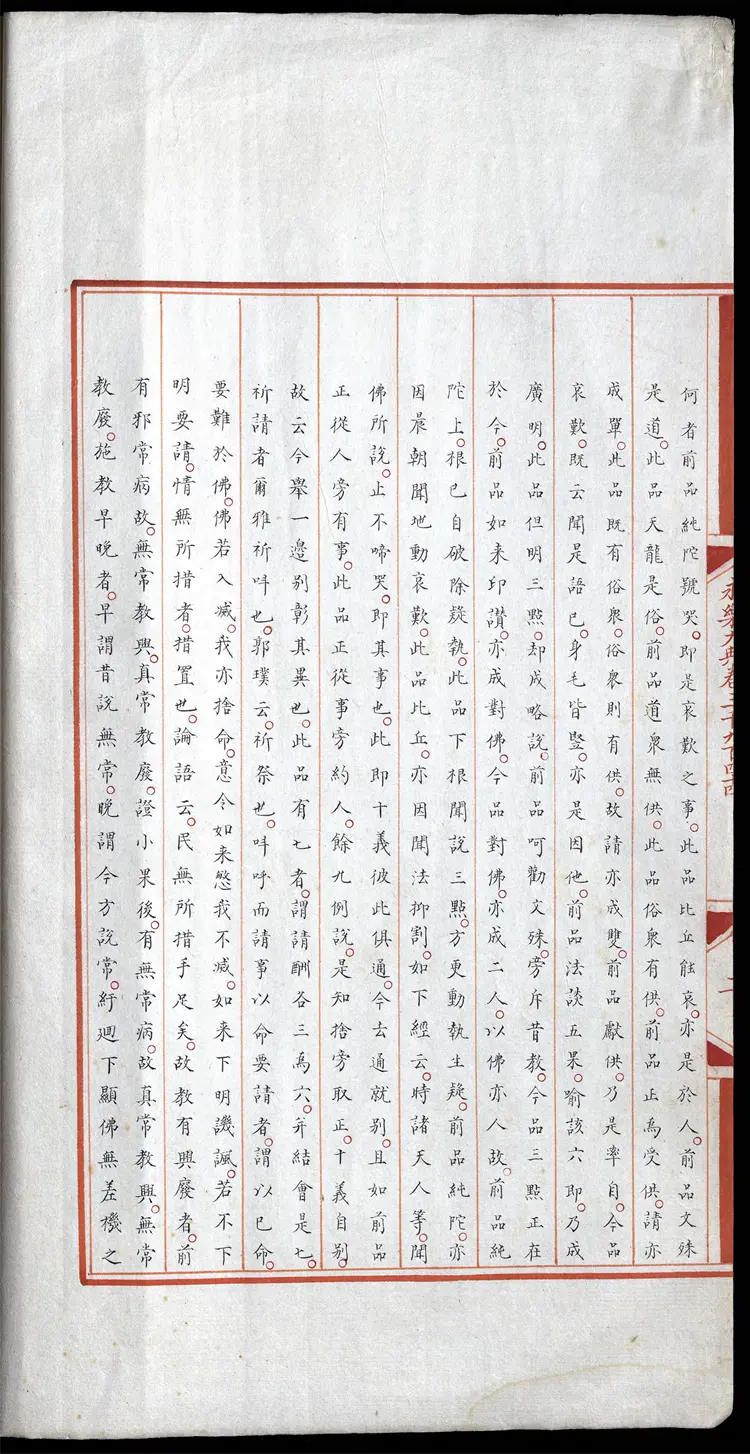 何者前品純陀號哭。即是哀歎之事。此品比丘能哀。亦是於人。前品文殊
是道。此品天龍是俗。前品道衆無供。此品俗衆有供。前品止為受供。請亦
成單。此品既有俗衆。俗衆則有供。故請亦成雙。前品獻供。乃是率自。今品
哀歎。既云聞是語已。身毛皆豎。亦是因他。前品法談五果。喻該六即。乃成
廣明。此品但明三點。却成略說。前品呵勸文殊。旁斥昔教。今品三點正在
於今。前品如来印讚。亦成對佛。今品對佛。亦成二人。以佛亦人故。前品純
陀上。根已自破除疑執。此品下根聞說三點。方更動執生疑。前品純陀。亦
因晨朝聞地動哀歎。此品比丘。亦因聞法抑割。如下經云。時諸天人等。聞
佛所說。止不啼哭。即其事也。此即十義彼此俱通。今去通就别。且如前品
正從人旁有事。此品正從事旁約人。餘九例說。是知捨旁取正。十義自别。
故云今舉一邉别彰其異也。此品有七者。謂請酬各三為六。并結會是七。
祈請者爾雅祈呌也。郭璞云。祈祭也。呌呼而請事以命要請者。謂以已命。
要難於佛。佛若入滅。我亦捨命。意令如来愍我不滅。如来下明譏諷。若不下
明要請。情無所措者。措置也。論語云。民無所措手足矣。故教有興廢者。前
有邪常病故。無常教興。真常教廢。證小果後。有無常病。故真常教興。無常
教廢。施教早晚者。早謂昔說無常。晚謂今方說常。紆廻下顯佛無差機之
永樂大典卷三千九百四四